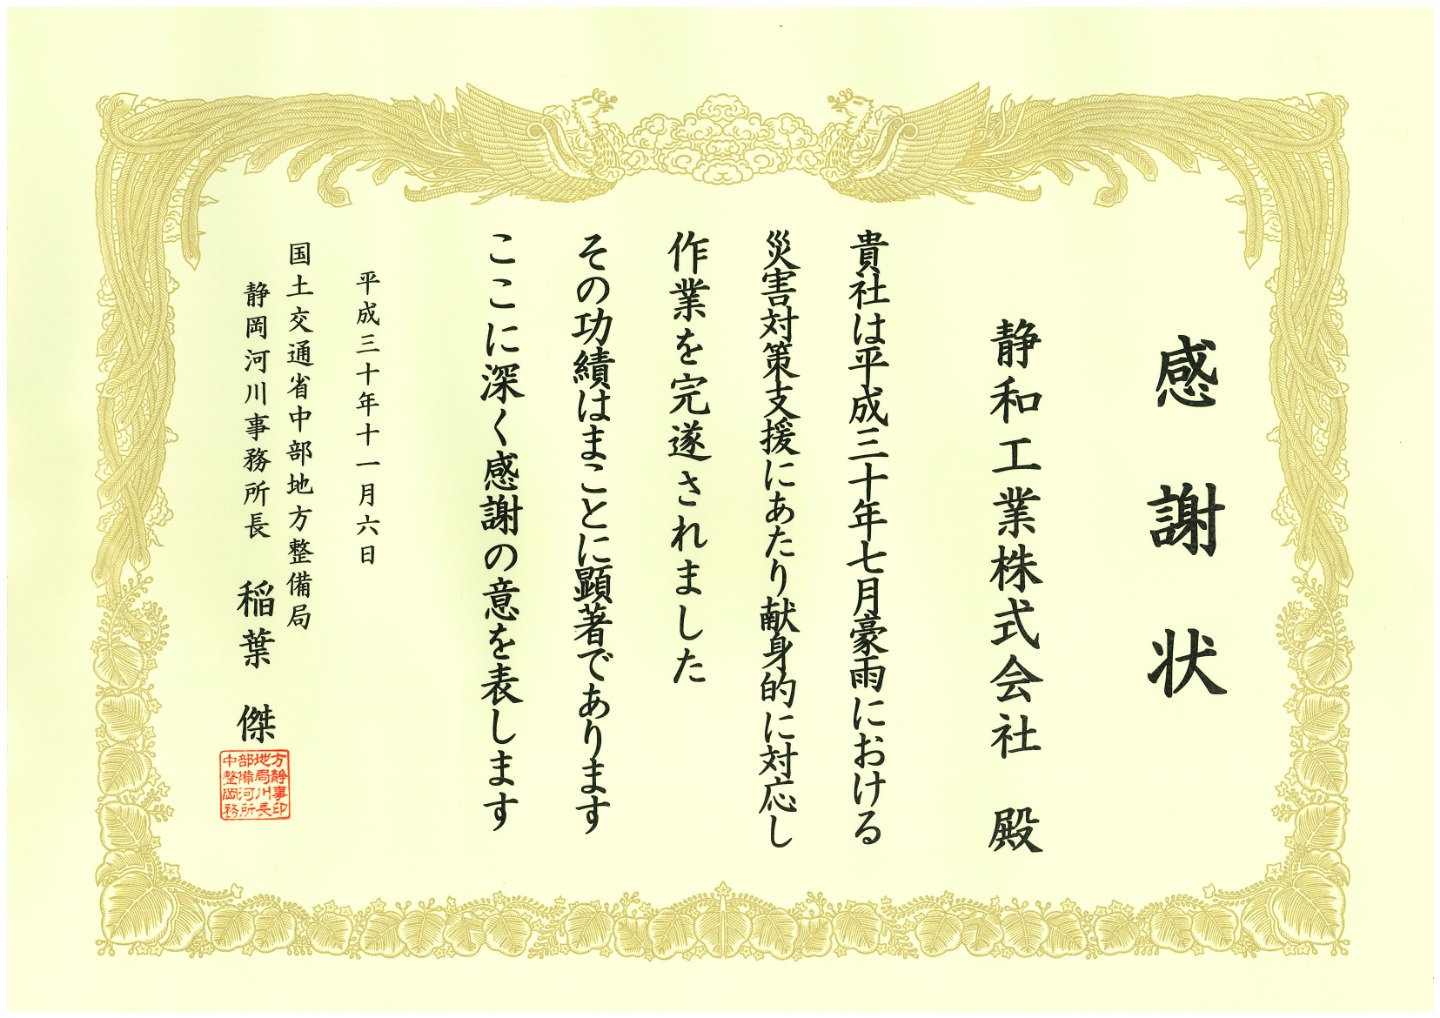 感謝状
静和工業株式会社 殿
貴社は平成三十年七月豪雨における
災害対策支援にあたり献身的に対応し
作業を完遂されました
その功績はまことに顕著であります
ここに深く感謝の意を表します
平成三十年十一月六日
国土交通省中部地方整備局
静岡河川事務所長 稲葉 傑
中部地方
整備局静
岡河川事
務所長印